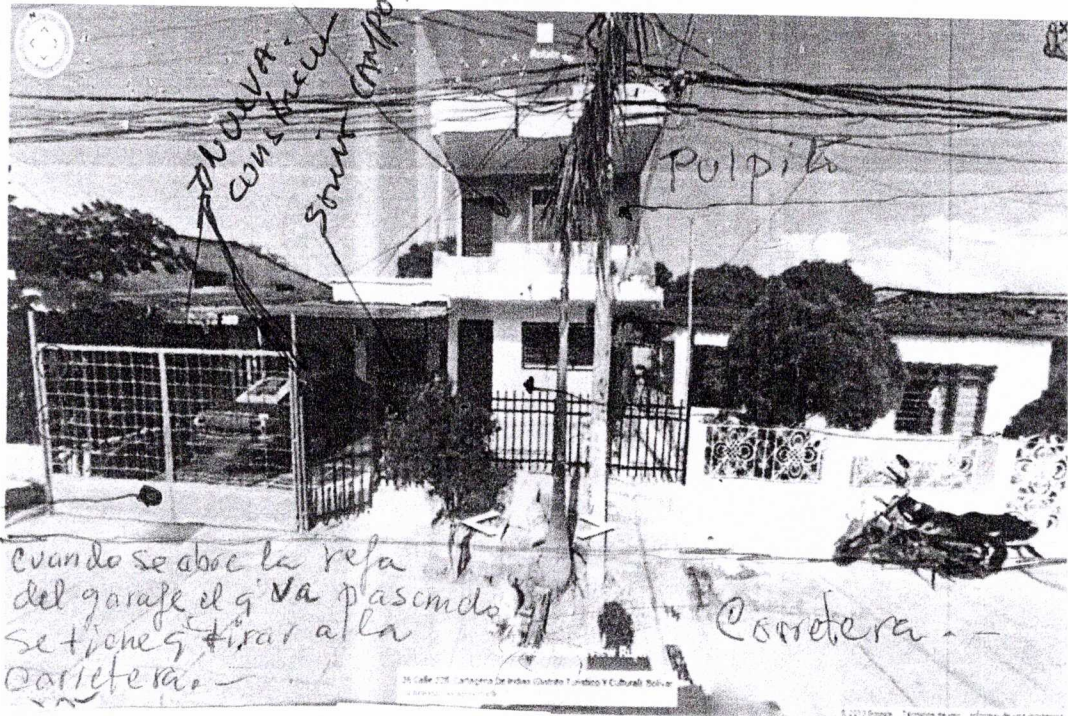 N
Nueva
construccion.
Sonia Campo
Pulpito
cuando se abre la reja
del garaje el q va pasando
se tiene q tirar a la
carretera. -
Carretera. -
Cartagena De Indias (Distrito Turístico Y Cultural), Bolívar